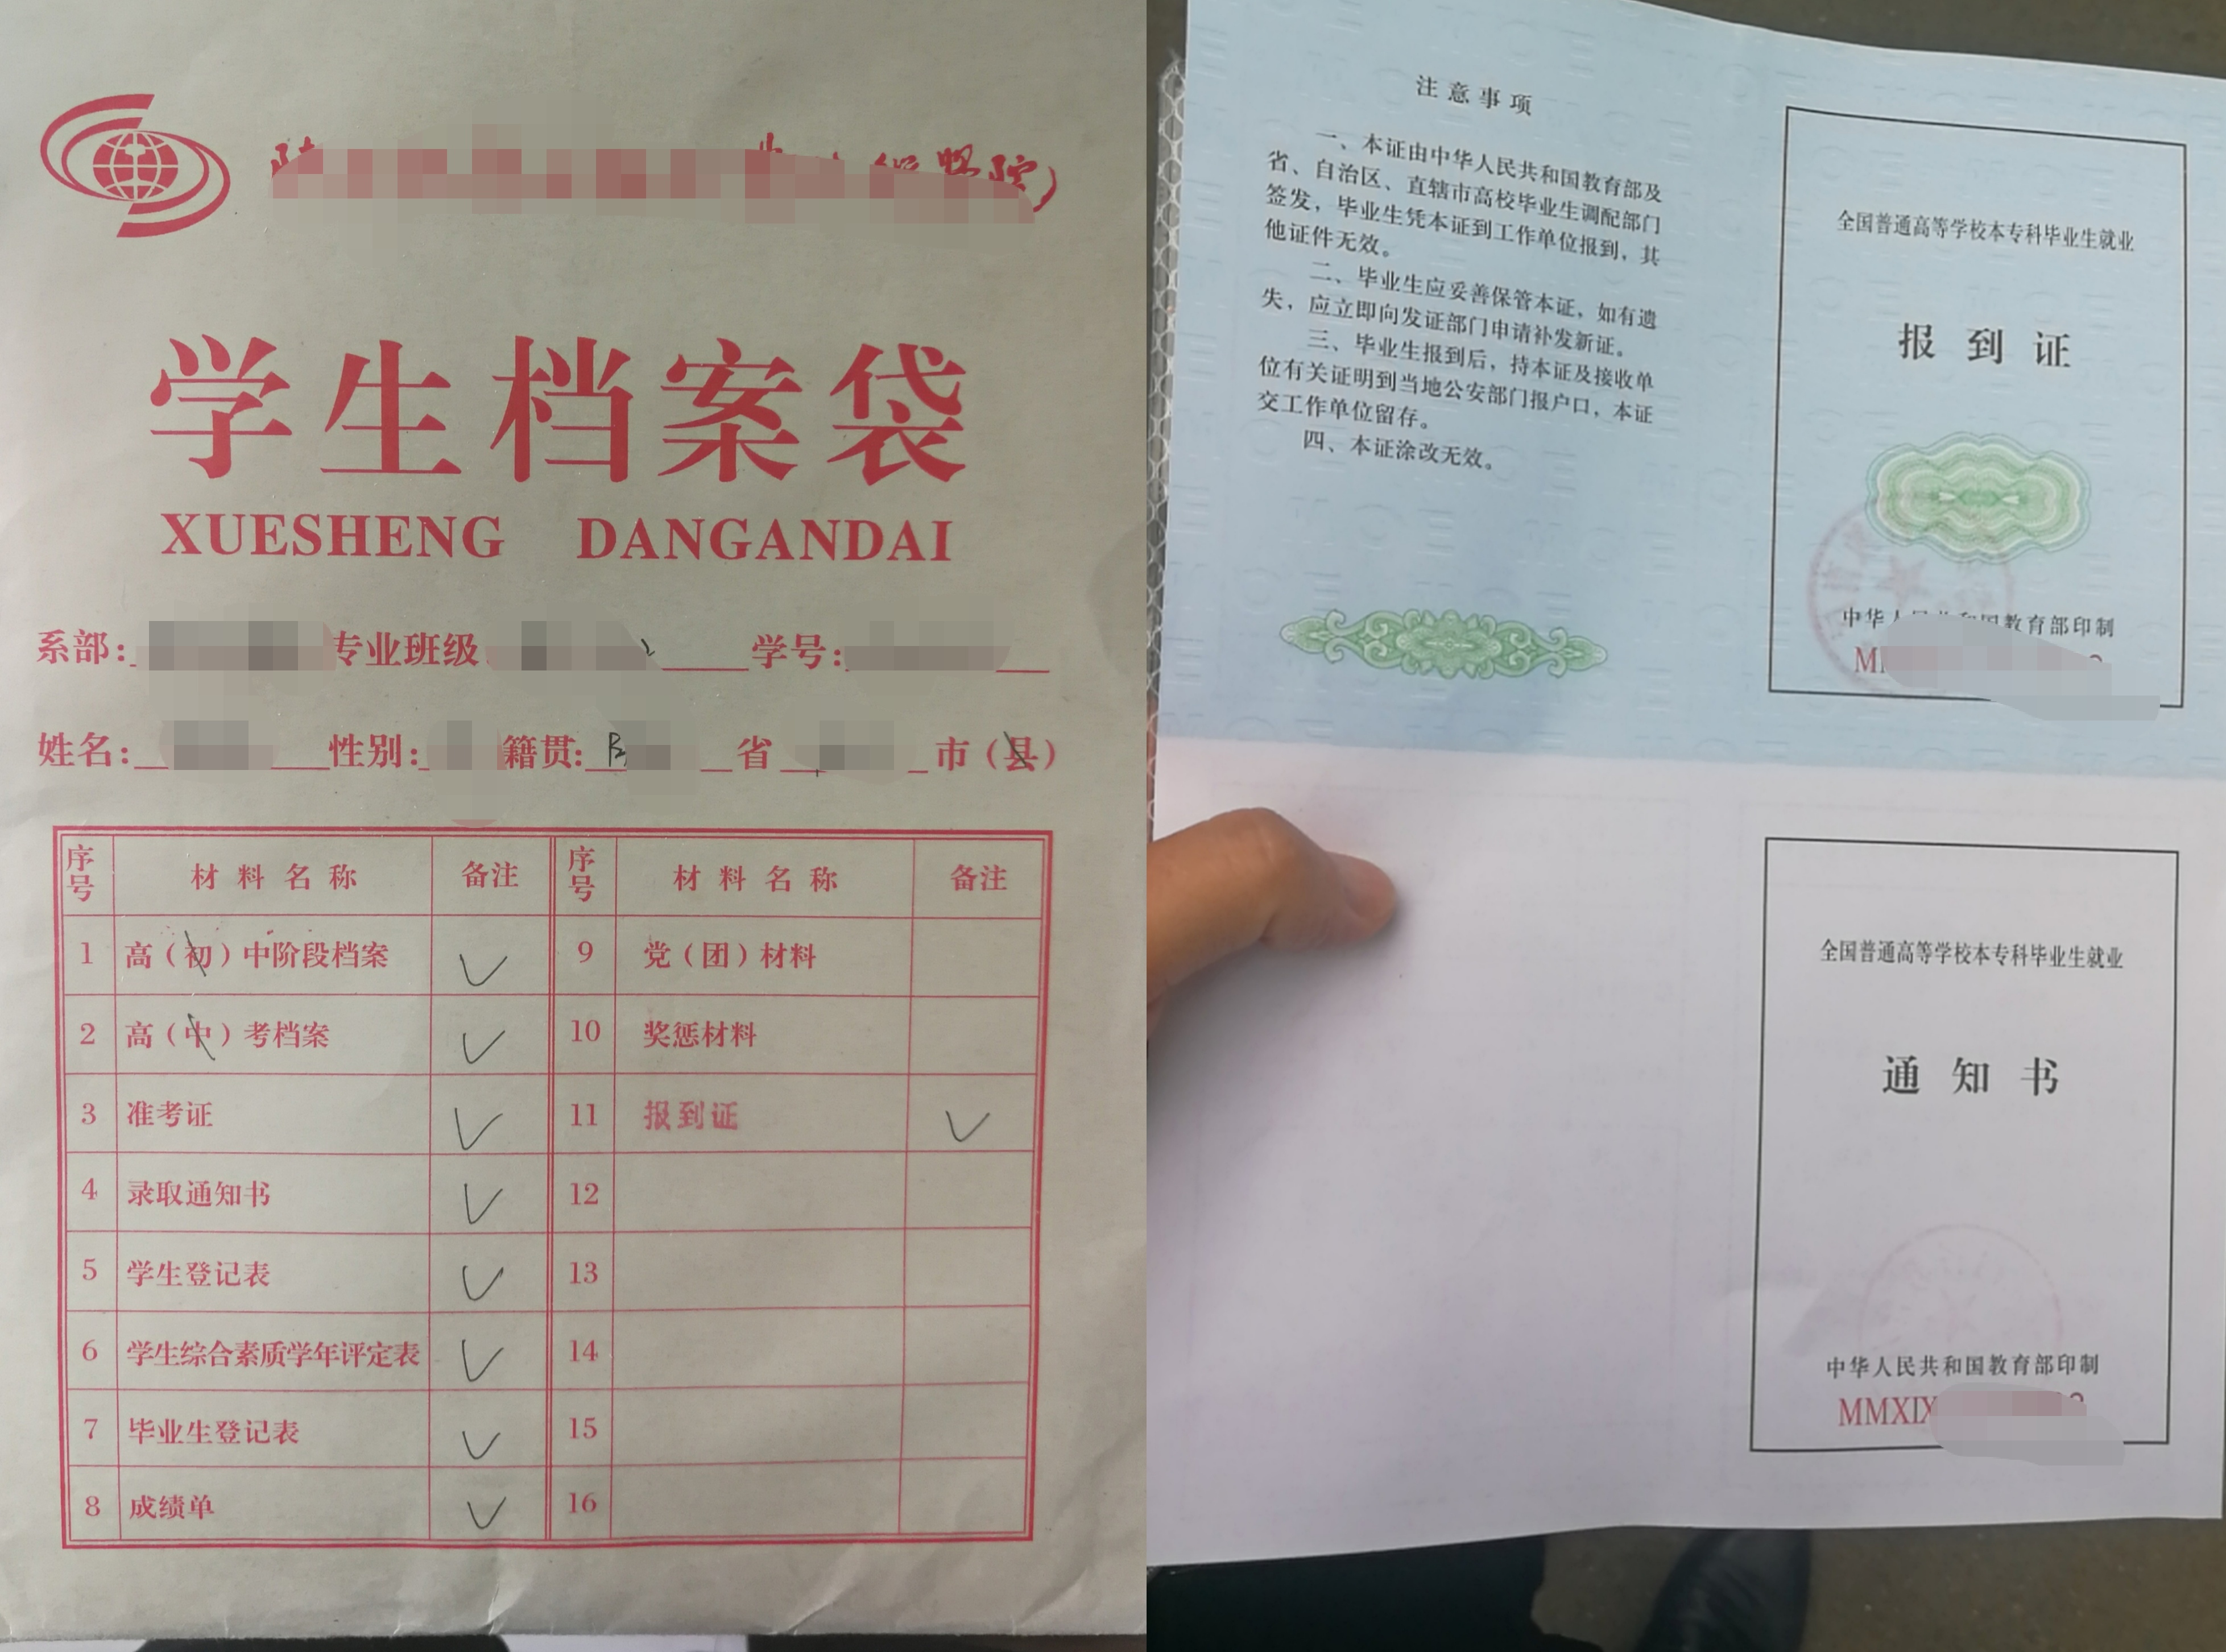 学生档案袋
XUESHENG DANGANDAI
系部： 专业班级 学号：
姓名： 性别： 籍贯： 省 市（县）
序号 材料名称 备注 序号 材料名称 备注
1 高（初）中阶段档案 ✓ 9 党（团）材料
2 高（中）考档案 ✓ 10 奖惩材料
3 准考证 ✓ 11 报到证 ✓
4 录取通知书 ✓ 12
5 学生登记表 ✓ 13
6 学生综合素质学年评定表 ✓ 14
7 毕业生登记表 ✓ 15
8 成绩单 ✓ 16
注意事项
一、本证由中华人民共和国教育部及
省、自治区、直辖市高校毕业生调配部门
签发，毕业生凭本证到工作单位报到，其
他证件无效。
二、毕业生应妥善保管本证，如有遗
失，应立即向发证部门申请补发新证。
三、毕业生报到后，持本证及接收单
位有关证明到当地公安部门报户口，本证
交工作单位留存。
四、本证涂改无效。
全国普通高等学校本专科毕业生就业
报到证
中华人民共和国教育部印制
全国普通高等学校本专科毕业生就业
通知书
中华人民共和国教育部印制
MMXIX